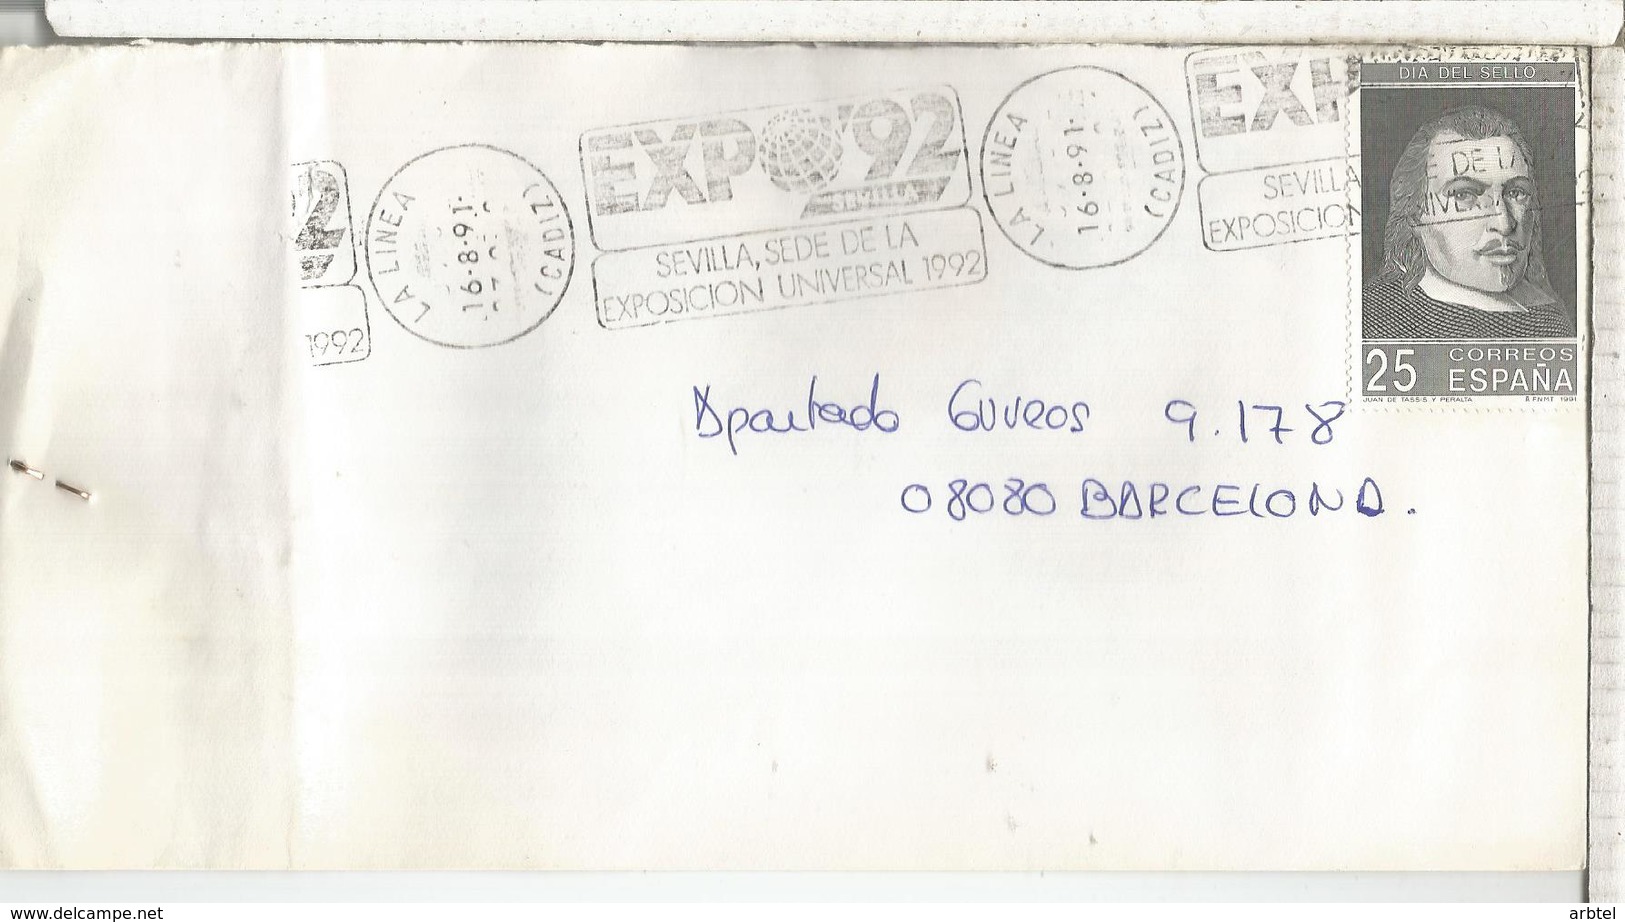 92
1992
LA LINEA
16·8·91
(CADIZ)
EXPO'92
SEVILLA
SEVILLA, SEDE DE LA
EXPOSICION UNIVERSAL 1992
LA LINEA
16·8·91
(CADIZ)
EXP
SEVILLA
EXPOSICION
DE LA
NIVERSA
DIA DEL SELLO
25 CORREOS
ESPAÑA
JUAN DE TASSIS Y PERALTA
F.N.M.T. 1991
Apartado Correos 9.178
08080 BARCELONA.
www.delcampe.net
arbtel